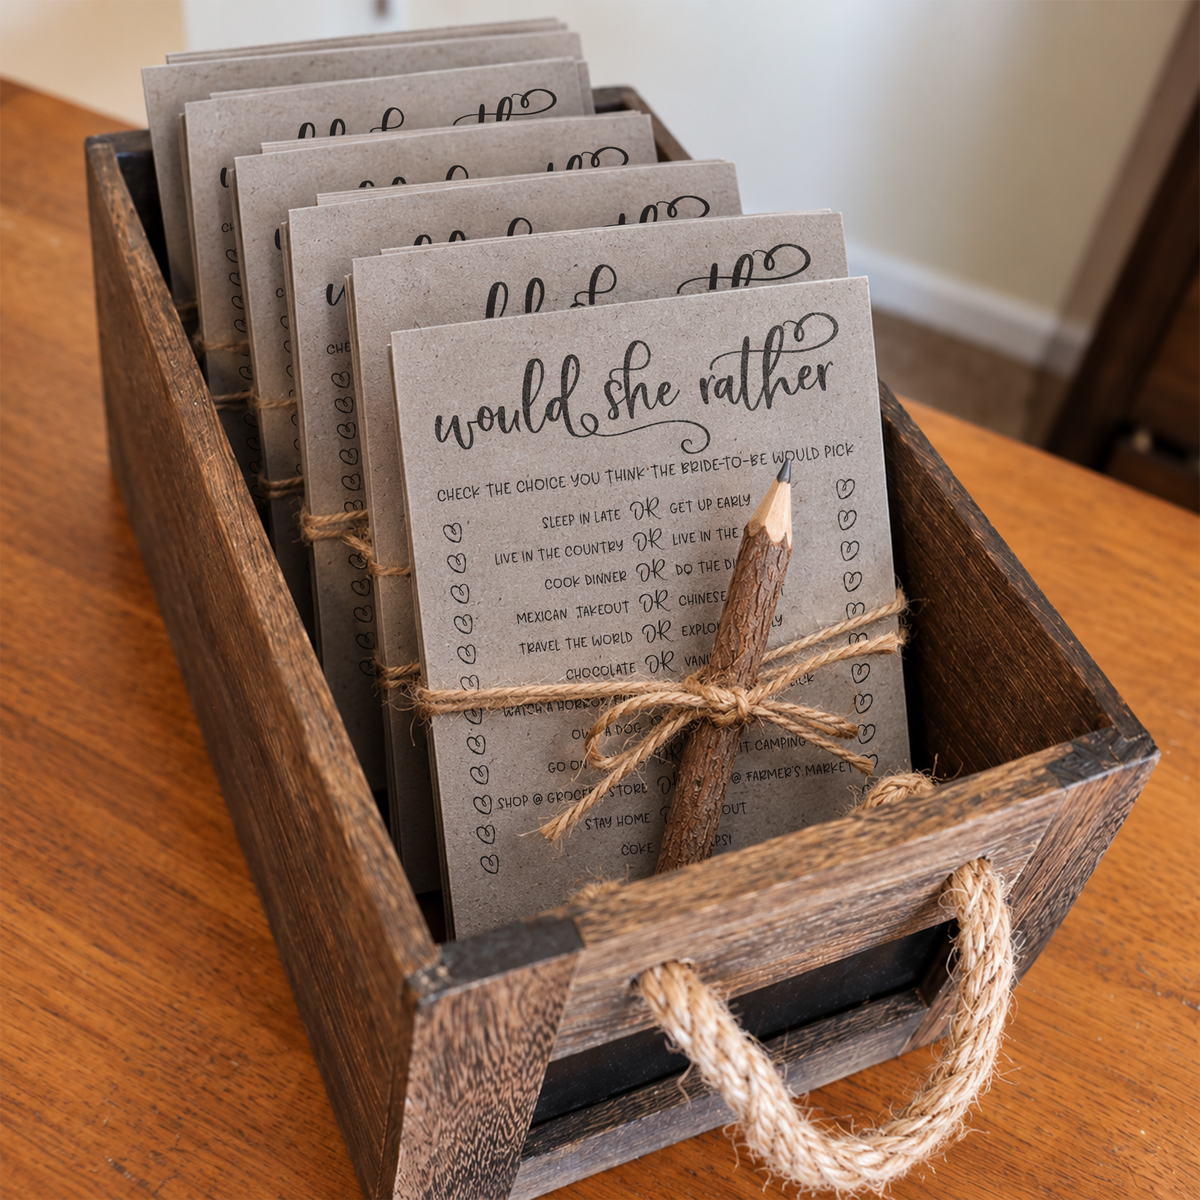 would she rather
CHECK THE CHOICE YOU THINK THE BRIDE-TO-BE WOULD PICK
SLEEP IN LATE OR GET UP EARLY
LIVE IN THE COUNTRY OR LIVE IN THE
COOK DINNER OR DO THE
MEXICAN TAKEOUT OR CHINESE
TRAVEL THE WORLD OR
CHOCOLATE OR
WATCH A HORROR
A DOG
GO ON CAMPING
SHOP @ GROCERY STORE OR @ FARMER'S MARKET
STAY HOME OUT
COKE